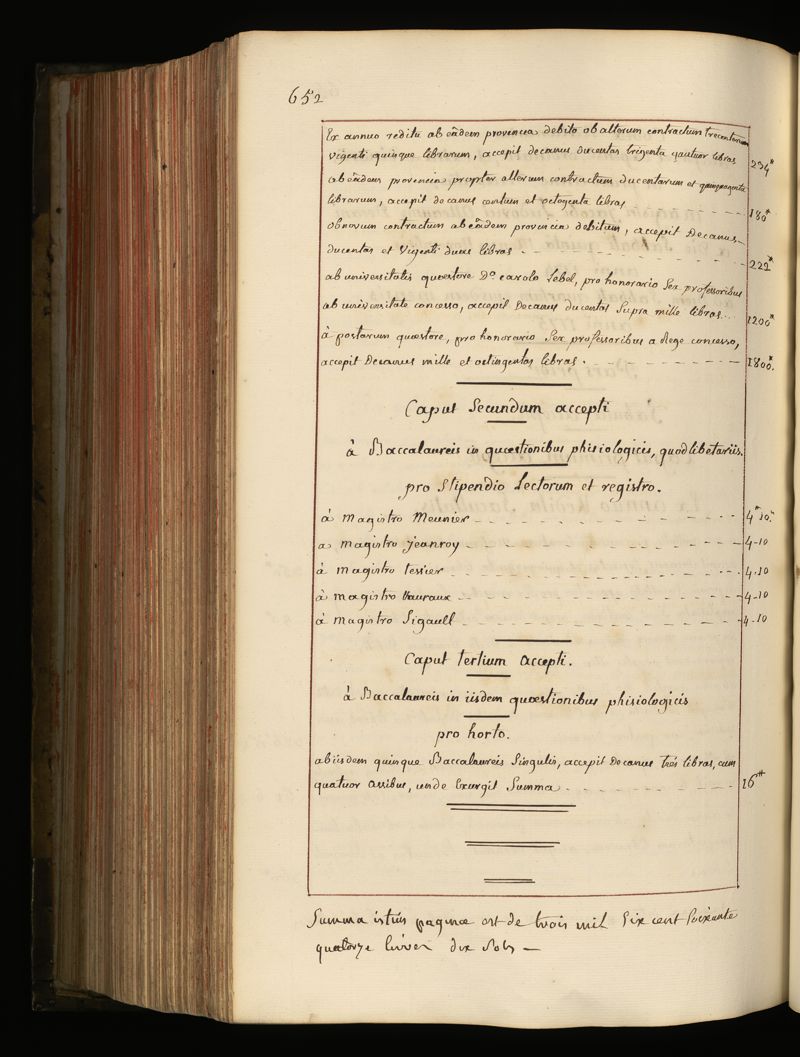 652
Ex annuo reditu ab eâdem provincia debito ob alterum contractum trecentarum
viginti quinque librarum, accepit decanus ducentas triginta quatuor libras 234#
ab eâdem provincia propter alterum contractum ducentarum et quinquaginta
librarum, accepit decanus centum et octoginta libras - - - 180#
ob novum contractum ab eâdem provincia debitum, accepit Decanus
ducentas et viginti duas libras - - - 222#
ab universitatis quæstore D.o carolo Lebel, pro honorario Sex professoribus
ab universitate concesso, accepit Decanus ducentas Supra mille libras - - 1200#
à postarum quæstore, pro honorario Sex professoribus a Rege concesso,
accepit Decanus mille et octingentas libras - - - 1800#.
Caput Secundum accepti
à Baccalaureis in quæstionibus phisiologicis, quodlibetariis.
pro Stipendio Lectorum et registro.
à magistro Meunier - - - 4# 10s
a magistro jeanroy - - - 4-10
à magistro tessier - - - 4-10
à magistro Vauraux - - - 4-10
à magistro Sigault - - - 4-10
Caput tertium Accepti.
à Baccalaureis in iisdem quæstionibus phisiologicis
pro horto.
ab iisdem quinque Baccalaureis Singulis, accepit Decanus trés libras, cum
quatuor assibus, unde Exurgit Summa - - - 16#
Summa istius paginæ est de trois mil Six cent Soixante
quatorze livres dix Sols —